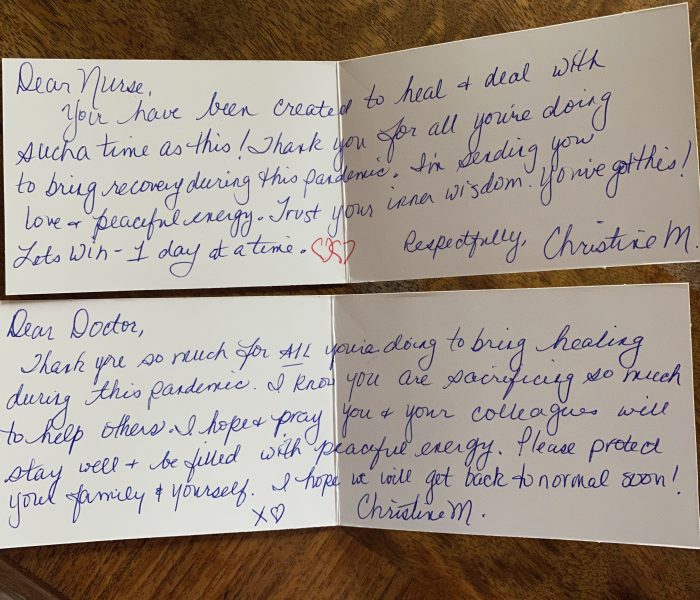 Dear Nurse,
You have been created to heal & deal with
such a time as this! Thank you for all you're doing
to bring recovery during this pandemic. I'm sending you
love & peaceful energy. Trust your inner wisdom. You've got this!
Lets win - 1 day at a time.
Respectfully, Christine M.
Dear Doctor,
Thank you so much for ALL you're doing to bring healing
during this pandemic. I know you are sacrificing so much
to help others. I hope & pray you & your colleagues will
stay well & be filled with peaceful energy. Please protect
your family & yourself. I hope we will get back to normal soon!
X♡ Christine M.